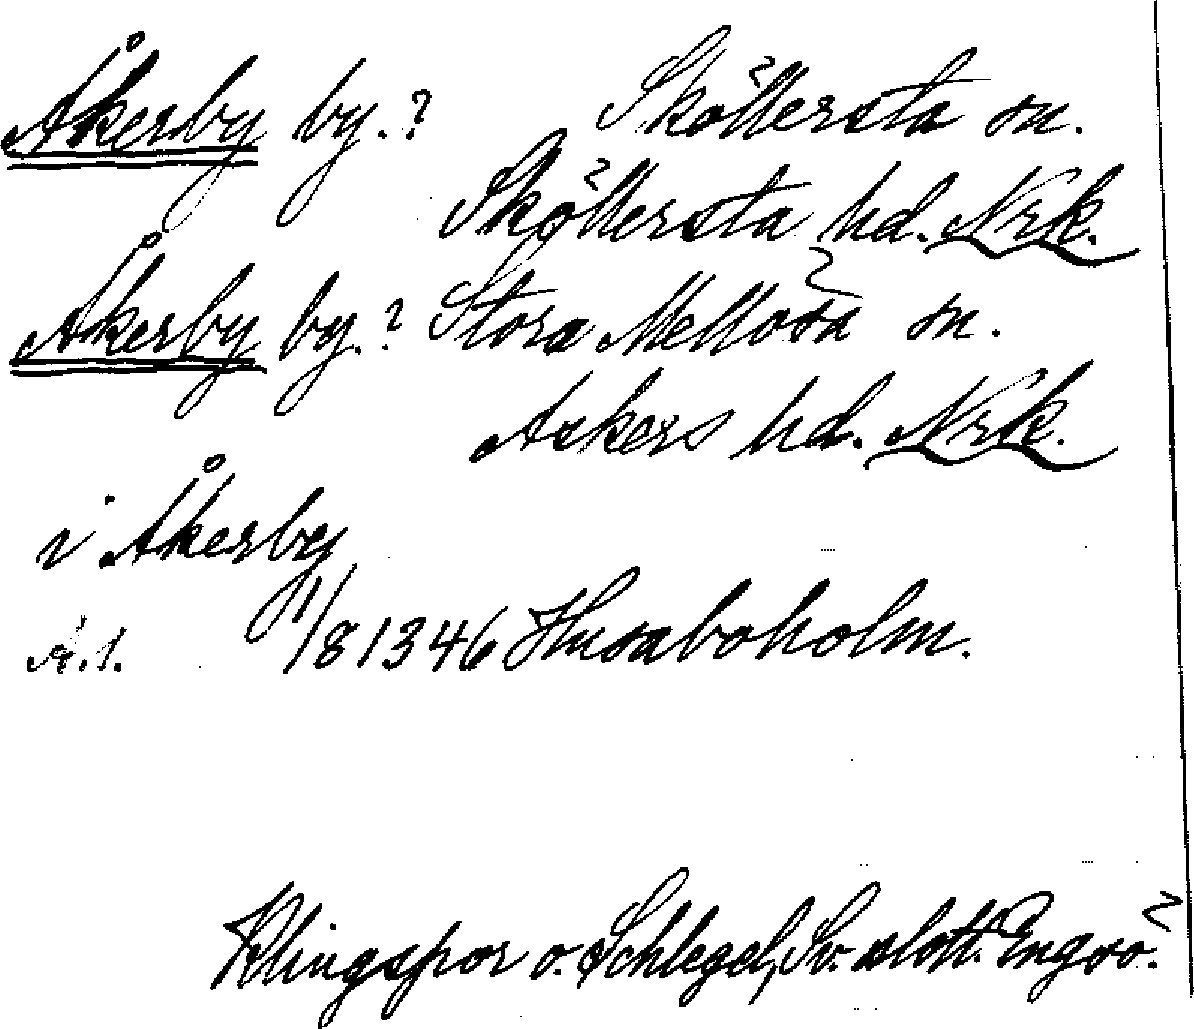 Åkerby by.? Sköllersta sn.
Sköllersta hd. Nrk.
Åkerby by.? Stora Mellösa sn.
Askers hd. Nrk.
i Åkerby
A.1. 11/8 1346 Husaboholm.
Klingspor o. Schlegel, Sv. slott. Engsö.